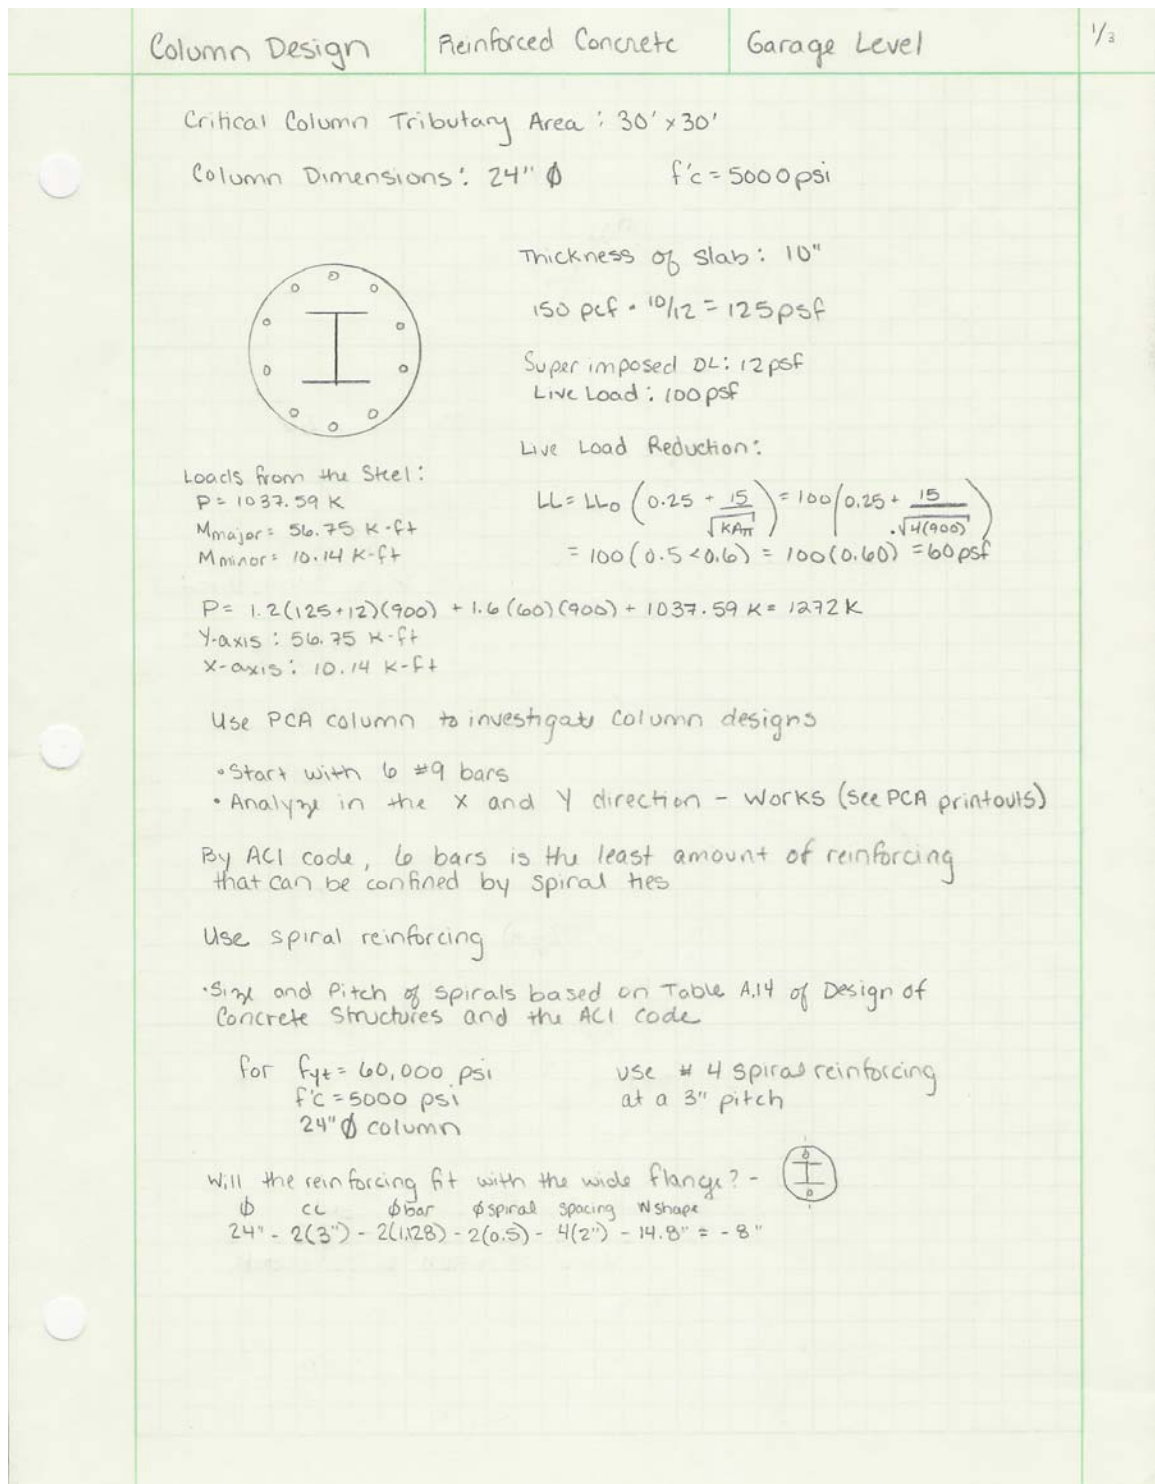 Column Design
Reinforced Concrete
Garage Level
1/3
Critical Column Tributary Area : 30' x 30'
Column Dimensions : 24" Ø
f'c = 5000 psi
Thickness of slab : 10"
150 pcf · 10/12 = 125 psf
Super imposed DL : 12 psf
Live Load : 100 psf
Live Load Reduction :
LL = LLo (0.25 + 15/√KAπ) = 100 (0.25 + 15/√4(900))
= 100 (0.5 < 0.6) = 100 (0.60) = 60 psf
Loads from the Steel :
P = 1037.59 K
Mmajor = 56.75 K-ft
Mminor = 10.14 K-ft
P = 1.2(125+12)(900) + 1.6(60)(900) + 1037.59 K = 1272 K
Y-axis : 56.75 K-ft
X-axis : 10.14 K-ft
Use PCA column to investigate column designs
• Start with 6 #9 bars
• Analyze in the X and Y direction - Works (see PCA printouts)
By ACI code, 6 bars is the least amount of reinforcing
that can be confined by spiral ties
Use spiral reinforcing
• Size and Pitch of spirals based on Table A.14 of Design of
Concrete Structures and the ACI code
for fyt = 60,000 psi
f'c = 5000 psi
24" Ø column
use # 4 spiral reinforcing
at a 3" pitch
Will the reinforcing fit with the wide flange? -
Ø CC Øbar Øspiral spacing W shape
24" - 2(3") - 2(1.128) - 2(0.5) - 4(2") - 14.8" = -8"